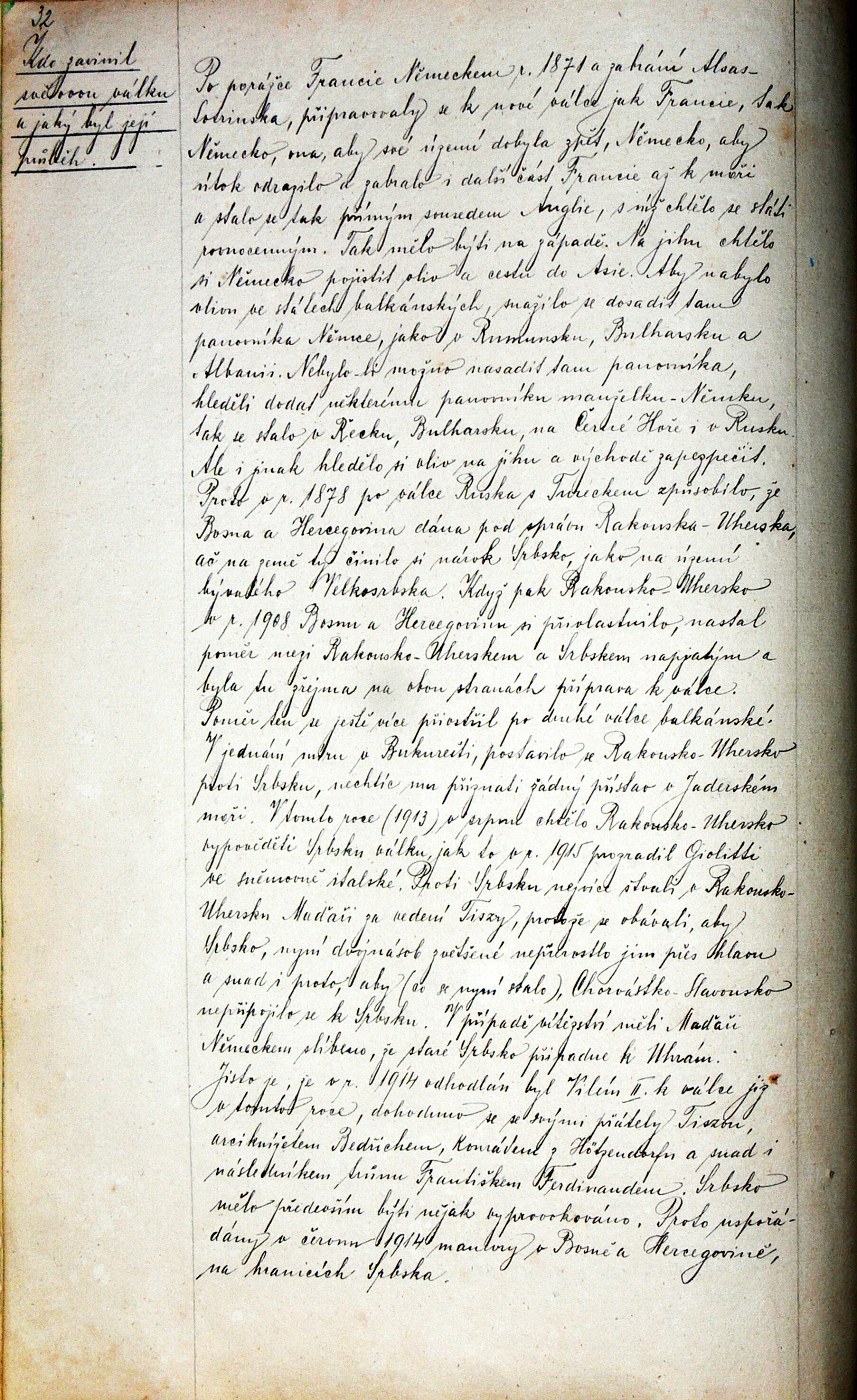 32
Kdo zavinil
světovou válku
a jaký byl její
průběh.
Po porážce Francie Německem r. 1871 a zabrání Alsas-
Lotrinska, připravovaly se k nové válce jak Francie, tak
Německo, ona, aby své území dobyla zpět, Německo, aby
útok odrazilo a zabralo i další část Francie až k moři
a stalo se tak přímým sousedem Anglie, s níž chtělo se státi
rovnocenným. Tak mělo býti na západě. Na jihu chtělo
si Německo pojistit vliv a cestu do Asie. Aby nabylo
vlivu ve státech balkánských, snažilo se dosadit tam
panovníka Němce, jako v Rumunsku, Bulharsku a
Albanii. Nebylo-li možno nasadit tam panovníka,
hleděli dodat některému panovníku manželku-Němku,
tak se stalo v Řecku, Bulharsku, na Černé Hoře i v Rusku.
Ale i jinak hledělo si vliv na jihu a východě zapezpečit.
Proto v r. 1878 po válce Ruska s Tureckem způsobilo, že
Bosna a Hercegovina dána pod správu Rakouska-Uherska,
ač na země ty činilo si nárok Srbsko, jako na území
bývalého Velkosrbska. Když pak Rakousko-Uhersko
v r. 1908 Bosnu a Hercegovinu si přivlastnilo, nastal
poměr mezi Rakousko-Uherskem a Srbskem napjatým a
byla tu zřejma na obou stranách příprava k válce.
Poměr ten se ještě více přiostřil po druhé válce balkánské.
V jednání míru v Bukurešti, postavilo se Rakousko-Uhersko
proti Srbsku, nechtíc mu přiznati žádný přístav v Jaderském
moři. V tomto roce (1913) v srpnu chtělo Rakousko-Uhersko
vypověděti Srbsku válku, jak to v r. 1915 prozradil Giolitti
ve sněmovně italské. Proti Srbsku nejvíce štvali v Rakousko-
Uhersku Maďaři za vedení Tiszy, protože se obávali, aby
Srbsko, nyní dvojnásob zvětšené nepřerostlo jim přes hlavu
a snad i proto, aby (co se nyní stalo), Chorvátsko-Slavonsko
nepřipojilo se k Srbsku. V případě vítězství měli Maďaři
Německem slíbeno, že staré Srbsko připadne k Uhrám.
Jisto je, že v r. 1914 odhodlán byl Vilém II. k válce již
v tomto roce, dohodnuv se se svými přátely Tiszou,
arciknížetem Bedřichem, Konrádem z Hötzendorfu a snad i
následníkem trůnu Františkem Ferdinandem. Srbsko
mělo především býti nějak vyprovokováno. Proto uspořá-
dány v červnu 1914 manévry v Bosně a Hercegovině,
na hranicích Srbska.